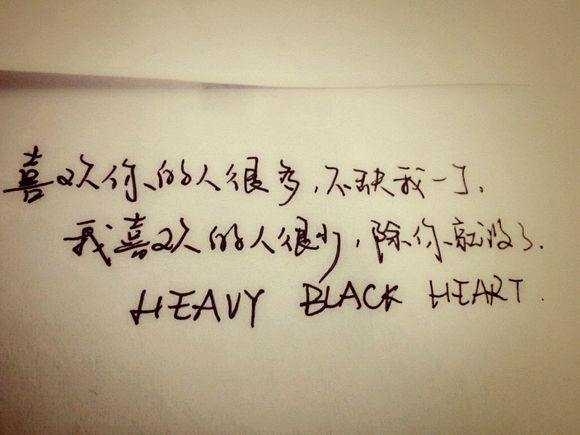 喜欢你的人很多,不缺我一个.
我喜欢的人很少,除你就没了.
HEAVY BLACK HEART.